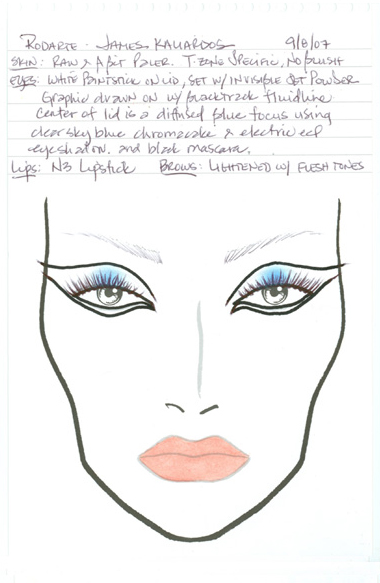 RODARTE - JAMES KALIARDOS 9/8/07
SKIN: RAW & A BIT PALER. T-ZONE SPECIFIC, NO BLUSH
EYES: WHITE PAINTSTICK ON LID, SET W/ INVISIBLE SET POWDER
Graphic drawn on w/ blacktrack fluidline
Center of lid is a diffused blue focus using
clear sky blue chromacake & electric eel
eyeshadow. and black mascara.
Lips: N3 Lipstick BROWS: LIGHTENED W/ FLESH TONES